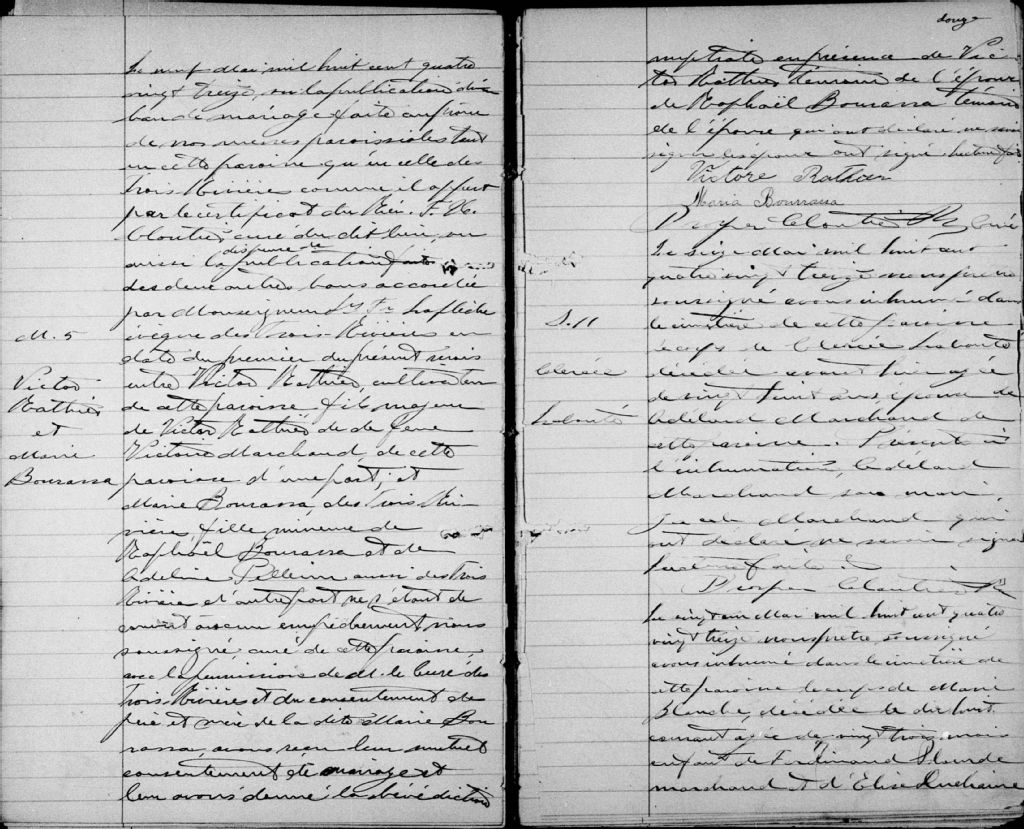 M. 5
Victor
Rathier
et
Marie
Bourassa
Le neuf Mai mil huit cent quatre
vingt treize, vu la publication d'un
ban de mariage faite au prône
de nos messes paroissiales tant
en cette paroisse qu'en celle des
Trois Rivières comme il appert
par le certificat du Rév. F. X.
Cloutier curé du dit lieu, vu
aussi la dispense de publication
des deux autres bans accordée
par Monseigneur Ls Fr Laflèche
évêque des Trois-Rivières en
date du premier du présent mois
entre Victor Rathier, cultivateur
de cette paroisse, fils majeur
de Victor Rathier et de feue
Victoire Marchand, de cette
paroisse d'une part; et
Marie Bourassa, des Trois Ri-
vières, fille mineure de
Raphaël Bourassa et de
Adeline Pellerin aussi des Trois
Rivières d'autre part ne s'étant dé
couvert aucun empêchement nous
soussigné, curé de cette paroisse,
avec la permission de M. le Curé des
Trois-Rivières et du consentement des
père et mère de la dite Marie Bou
rassa, avons reçu leur mutuel
consentement de mariage et
leur avons donné la bénédiction
douze
nuptiale en présence de Vic-
tor Rathier témoin de l'époux
de Raphaël Bourassa témoin
de l'épouse qui ont déclaré ne savoir
signer les époux ont signé lecture faite
Victore Rathier
Maria Bourassa
Prosper Cloutier Ptre Curé
S. 11
Clérée
Labonté
Le seize Mai mil huit cent
quatre vingt treize nous prêtre
soussigné avons inhumé dans
le cimetière de cette paroisse
le corps de Clérée Labonté
décédée avant hier agée
de vingt huit ans épouse de
Adélard Marchand de
cette paroisse. Présents à
l'inhumation, Adélard
Marchand son mari,
Marchand qui
ont déclaré ne savoir signer
lecture faite
Prosper Cloutier Ptre
Le vingt un Mai mil huit cent quatre
vingt treize nous prêtre soussigné
avons inhumé dans le cimetière de
cette paroisse le corps de Marie
Blanche, décédée le dix huit
courant agée de vingt trois mois
enfant de Ferdinand Plourde
marchand et d'Elise Duchaine